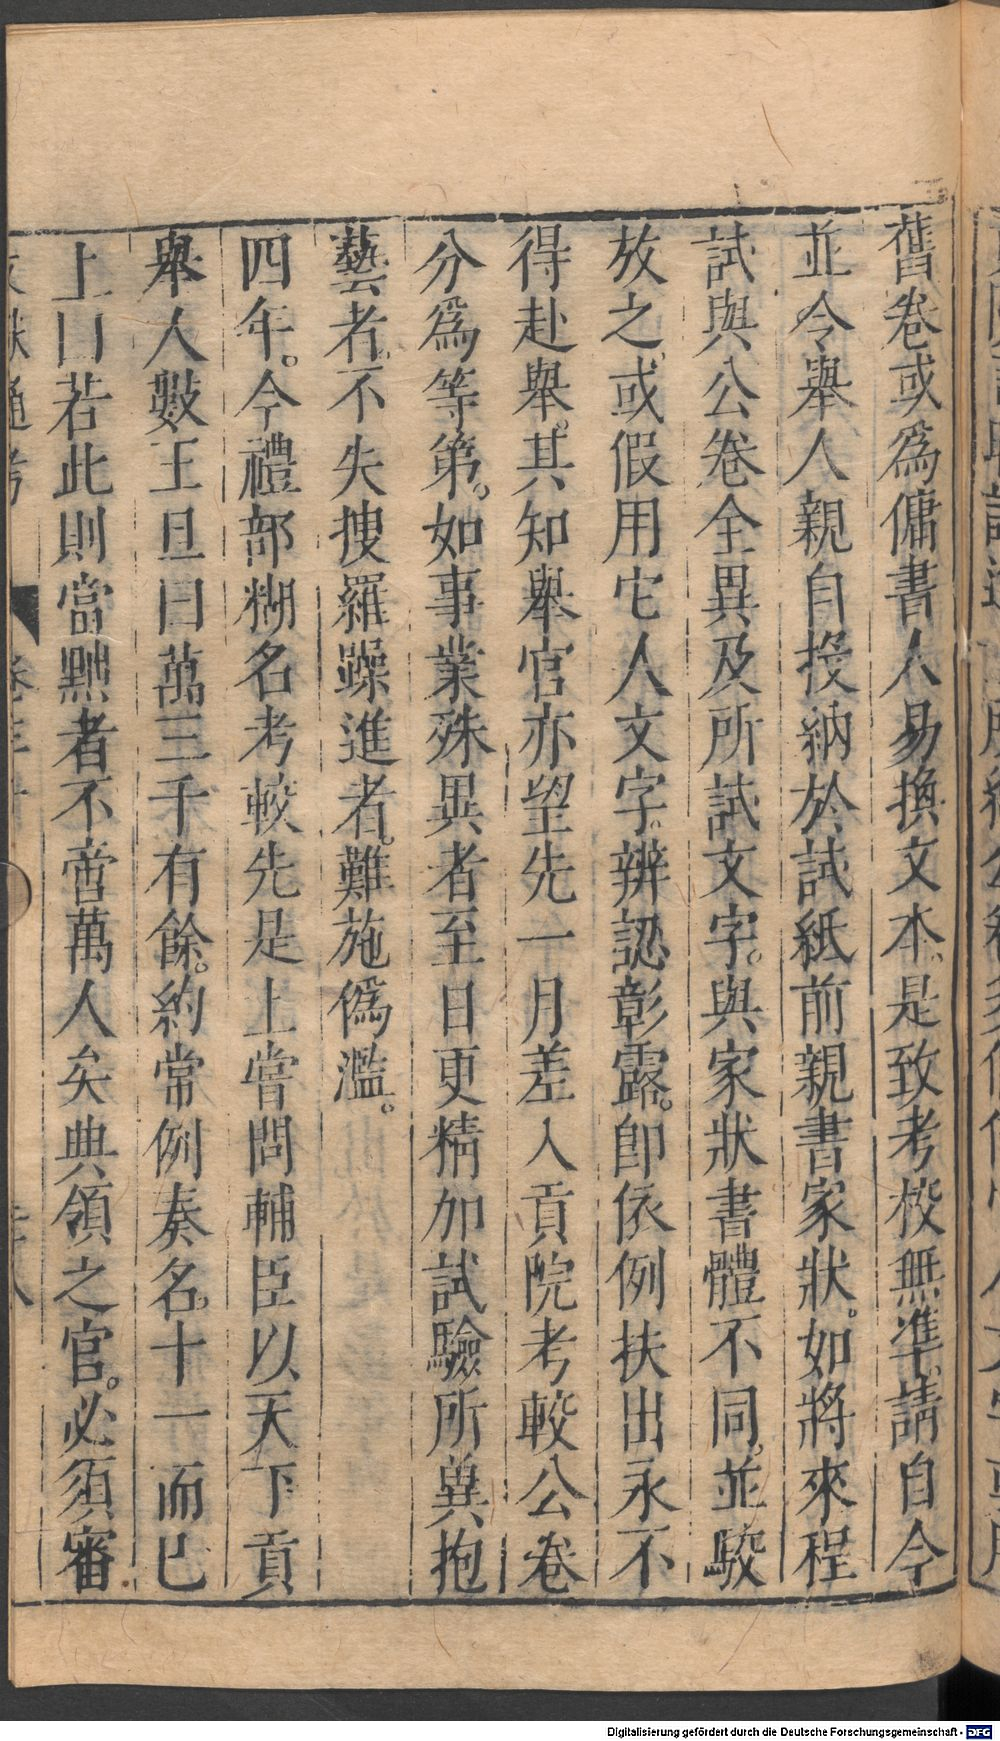 舊卷或爲傭書人易換文本是致考校無準請自今
並令舉人親自投納於試紙前親書家狀。如將來程
試與公卷全異及所試文字。與家狀書體不同。並駮
放之或假用它人文字。辨認彰露。即依例扶出永不
得赴舉。其知舉官亦望先一月差入貢院考較公卷
分爲等第。如事業殊異者至日更精加試驗所兾抱
藝者不失搜羅躁進者。難施僞濫。
四年。今禮部糊名考較先是上嘗問輔臣以天下貢
舉人數王旦曰萬三千有餘。約常例奏名。十一而已
上曰若此則當黜者不啻萬人矣典領之官。必須審
通考
Digitalisierung gefördert durch die Deutsche Forschungsgemeinschaft - DFG